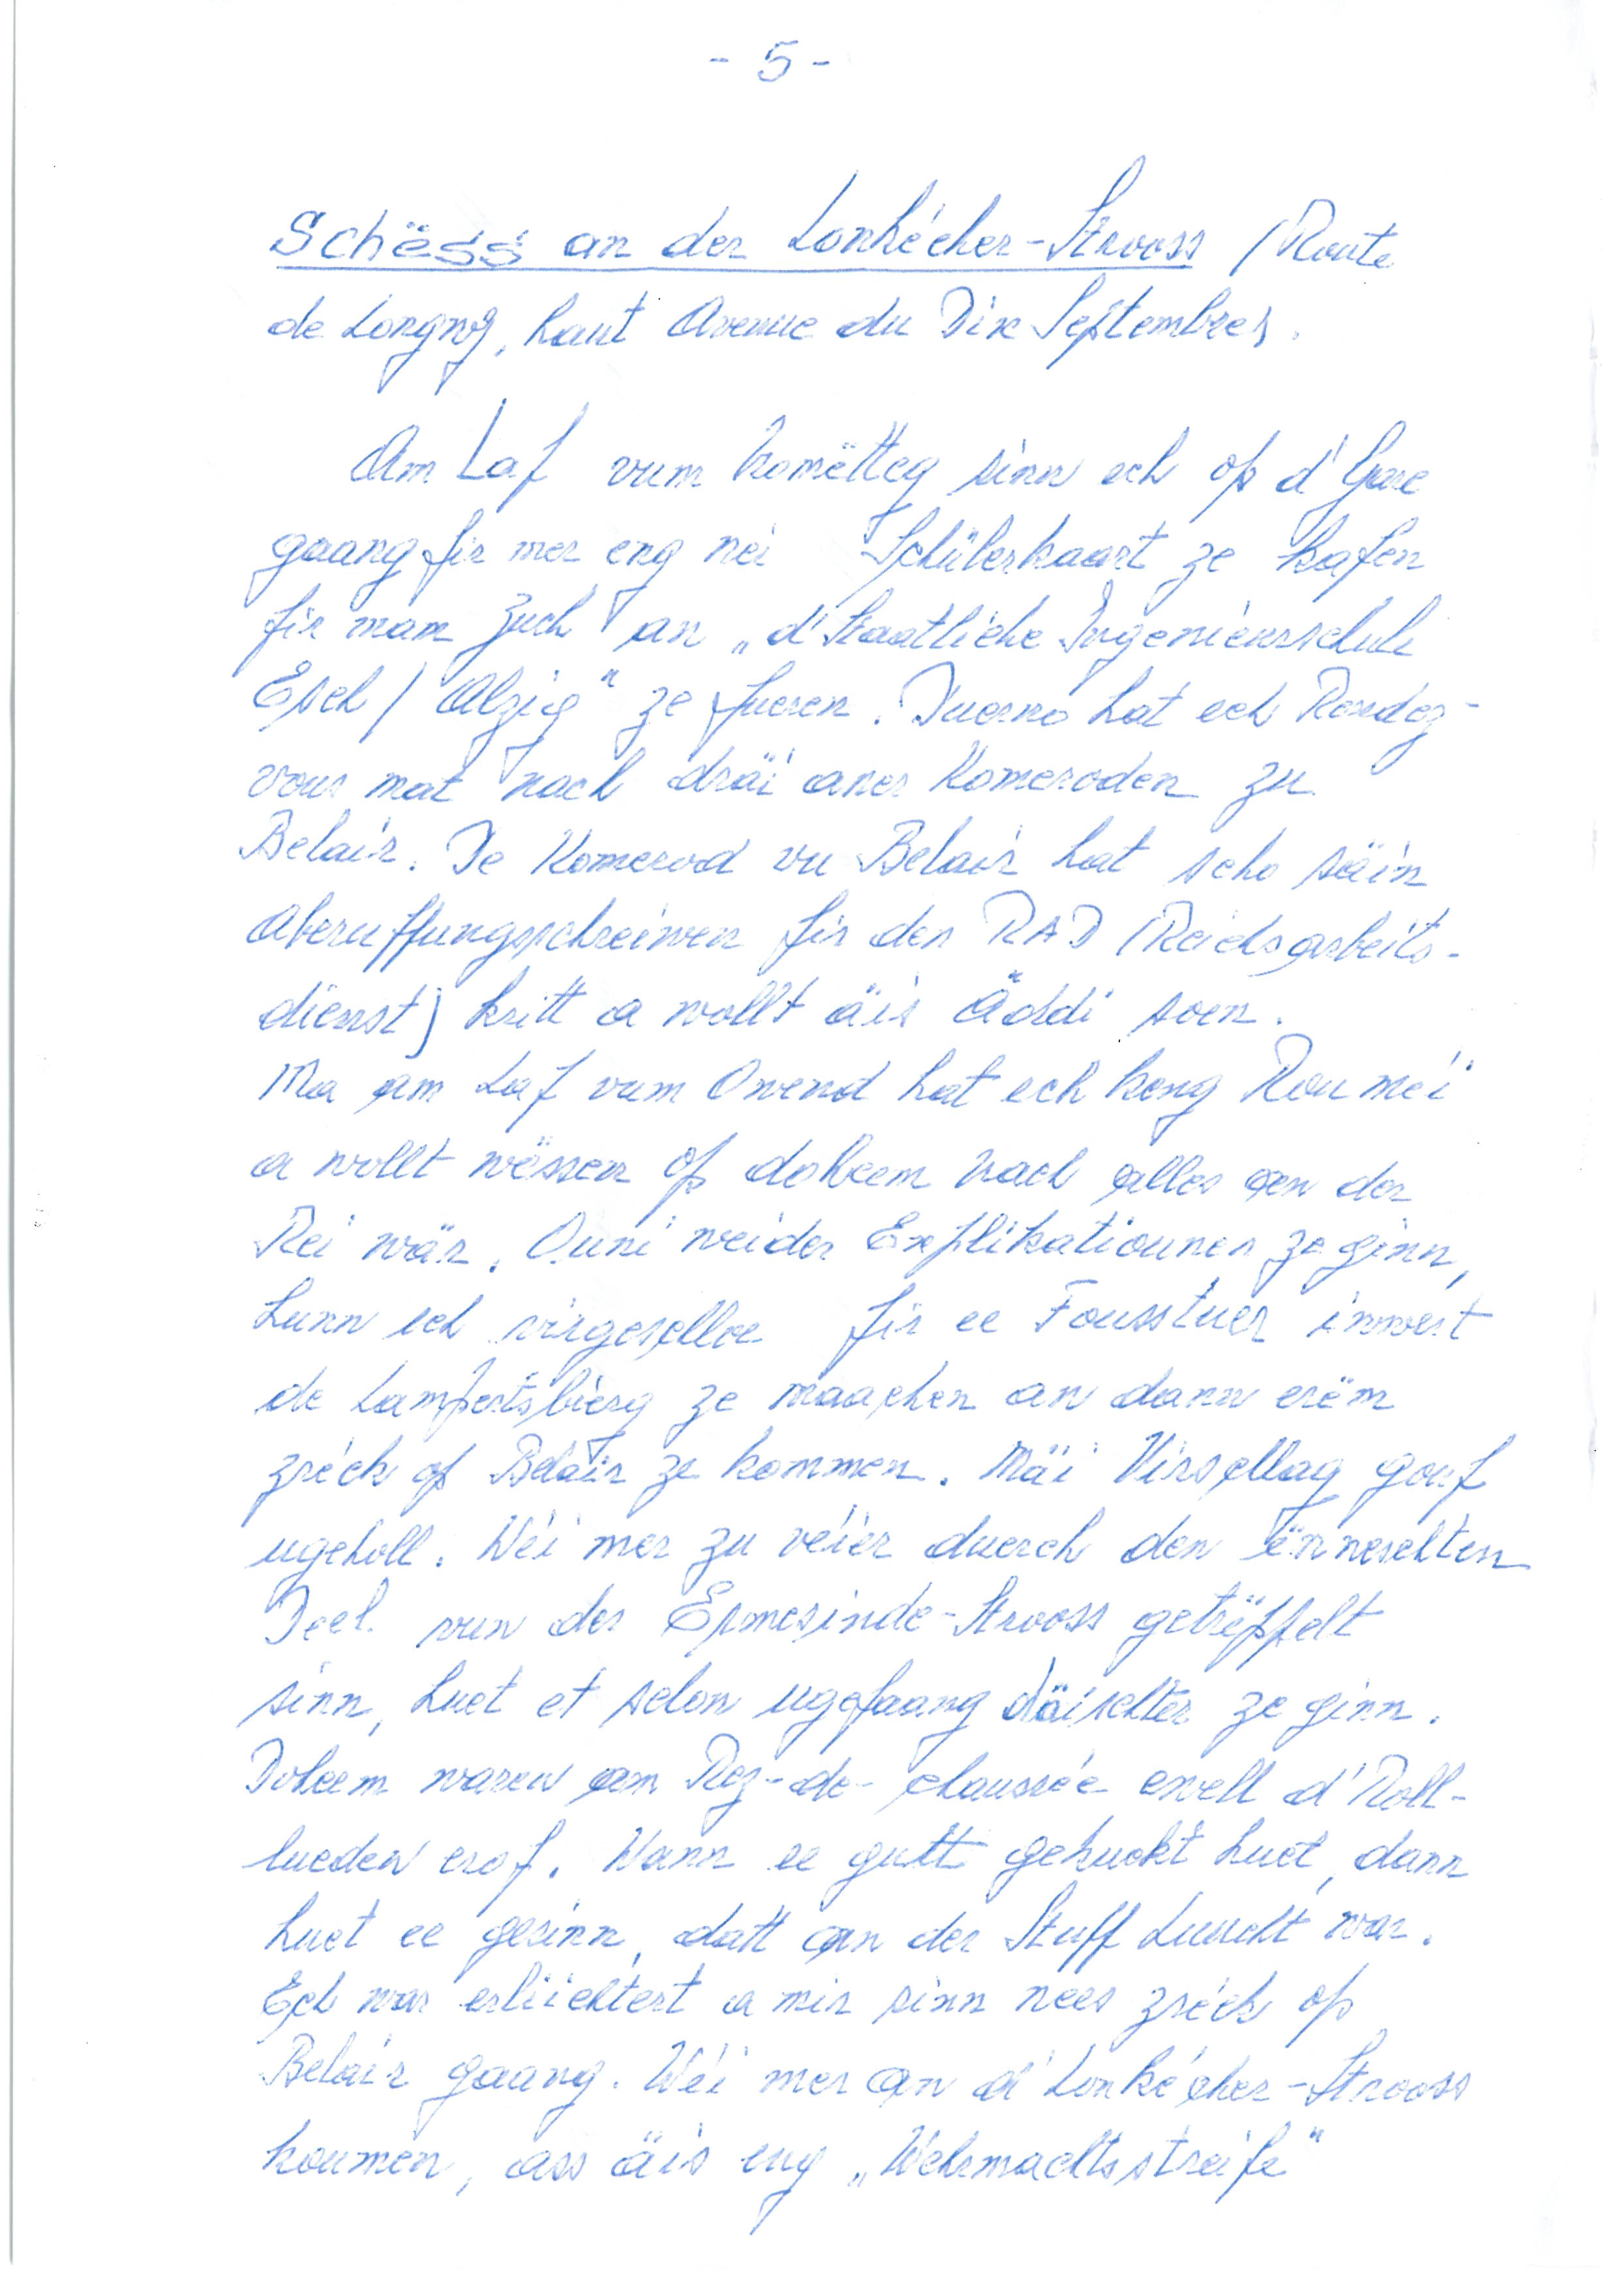 - 5 -
Schëss an der Lonkécher-Strooss (Route
de Longwy, haut Avenue du Dix Septembre).
Am Laf vum Nomëtteg sinn ech op d'Gare
gaang fir mer eng nei Schülerkaart ze kafen
fir mam Zuch an „d'Staatliche Ingenieurschule
Esch / Alzig" ze fueren. Duerno hat ech Rendez-
vous mat nach dräi aner Komeroden zu
Belair. De Komerod vu Belair hat scho säin
Aberuffungsschreiwen fir den RAD (Reichsarbeits-
dienst) kritt a wollt äis Äddi soen.
Ma am Laf vum Owend hat ech keng Rou méi
a wollt wëssen op doheem nach alles an der
Rei wär. Ouni weider Explikatiounen ze ginn,
hunn ech virgeschloe fir ee Fousstuer iwwert
de Lampertsbierg ze maachen an dann erëm
zréck op Belair ze kommen. Mäi Virschlag gouf
ugeholl. Wéi mer zu véier duerch den ënneschten
Deel vun der Ermesinde-Strooss getrëppelt
sinn, huet et schon ugefaang däischter ze ginn.
Doheem waren am Rez-de-chaussée ewell d'Roll-
lueden erof. Wann ee gutt gekuckt huet, dann
huet ee gesinn, datt an der Stuff Luucht war.
Ech war erliichtert a mir sinn nees zréck op
Belair gaang. Wéi mer an d'Lonkécher-Strooss
koumen, ass äis eng „Wehrmachtsstreife"